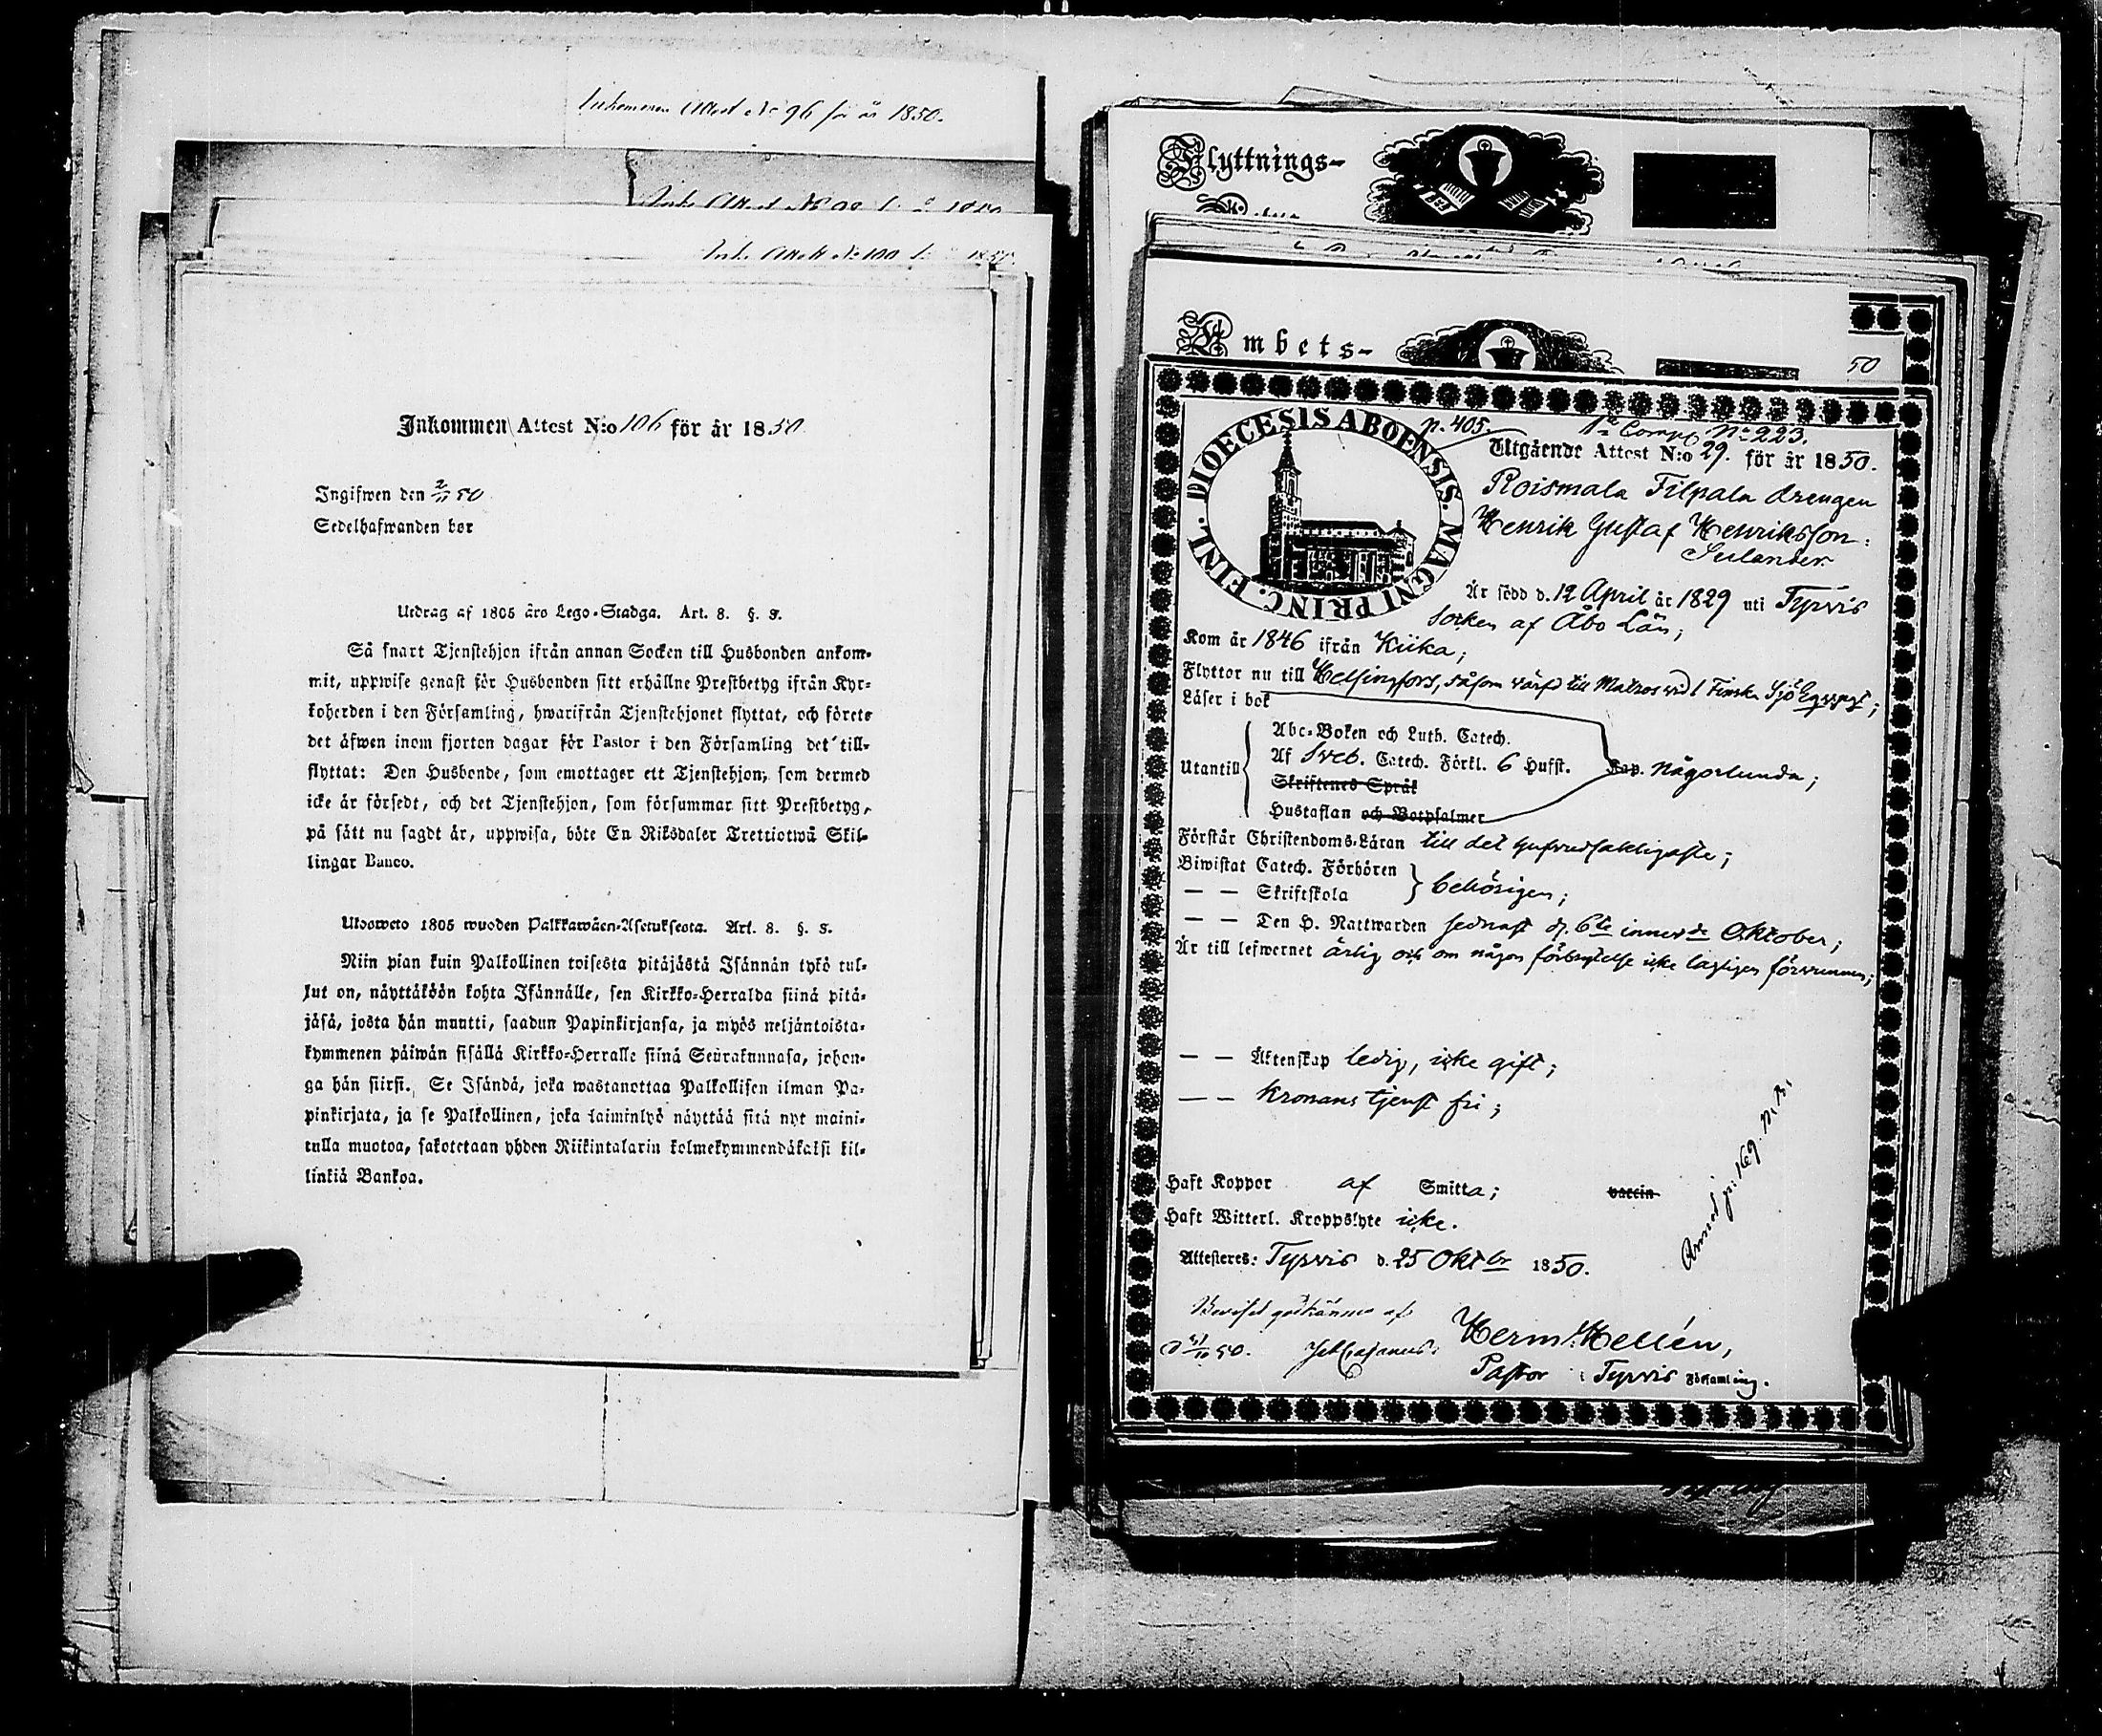 Inkommen Attest No 96 för år 1850.
Ink. Attest No 100
Inkommen Attest N:o 106 för år 1850
Ingifwen den 2/11 50
Sedelhafwanden bor
Utdrag af 1805 års Lego-Stadga. Art. 8. §. 3.
Så snart Tjenstehjon ifrån annan Socken till Husbonden ankom-
mit, uppwise genast för Husbonden sitt erhållne Prestbetyg ifrån Kyr-
koherden i den Församling, hwarifrån Tjenstehjonet flyttat, och förete
det äfwen inom fjorton dagar för Pastor i den Församling det till-
flyttat: Den Husbonde, som emottager ett Tjenstehjon, som dermed
icke är försedt, och det Tjenstehjon, som försummar sitt Prestbetyg,
på sätt nu sagdt är, uppwisa, böte En Riksdaler Trettiotwå Skil-
lingar Banco.
Ulosweto 1805 wuoden Palkkawäen-Asetuksesta. Art. 8. §. 3.
Niin pian kuin Palkollinen toisesta pitäjästä Isännän tykö tul-
lut on, näyttäköön kohta Isännälle, sen Kirkko-Herralda siinä pitä-
jäsä, josta hän muutti, saadun Papinkirjansa, ja myös neljäntoista-
kymmenen päiwän sisällä Kirkko-Herralle siinä Seurakunnasa, johon-
ga hän siirsi. Se Isändä, joka wastanottaa Palkollisen ilman Pa-
pinkirjata, ja se Palkollinen, joka laiminlyö näyttää sitä nyt maini-
tulla muotoa, sakotetaan yhden Riikintalarin kolmekymmendäkaksi kil-
linkiä Bankoa.
Flyttnings-
Ambets-
50
DIOECESIS ABOENSIS. MAGNI PRINC. FINL.
p. 405. 1a Comp. No 223.
Utgående Attest N:o 29. för år 1850.
Roismala Filpala drengen
Henrik Gustaf Henriksson
Är född d. 12 April år 1829 uti Tyrvis
Socken af Åbo Län;
Kom år 1846 ifrån Kiika;
Flyttor nu till Helsingfors, såsom värfd till Matros vid 1 Finska Sjö Equipaget;
Läser i bok
Utantill
Abc-Boken och Luth. Catech.
Af Sveb. Catech. Förkl. 6 Hufst. Kap. någorlunda;
Skriftenes Språk
Hustaflan och Botpsalmer
Förstår Christendoms-Läran till det hufvudsakligaste;
Biwistat Catech. Förhören
— — Skriftskola behörigen;
— — Den H. Nattwarden sednast d. 6te innev:de Oktober;
Är till lefwernet ärlig och om någon förbrytelse icke lagligen förvunnen;
— — Äktenskap ledig, icke gift;
— — Kronans tjenst fri;
Haft Koppor af Smitta; vaccin
Haft Witterl. Kroppslyte icke.
Attesteres: Tyrvis d. 25 Oktbr 1850.
Annot. p: 169. N. B.
Beviset godkännes af
Herm. Hellén,
Pastor i Tyrvis Församling.